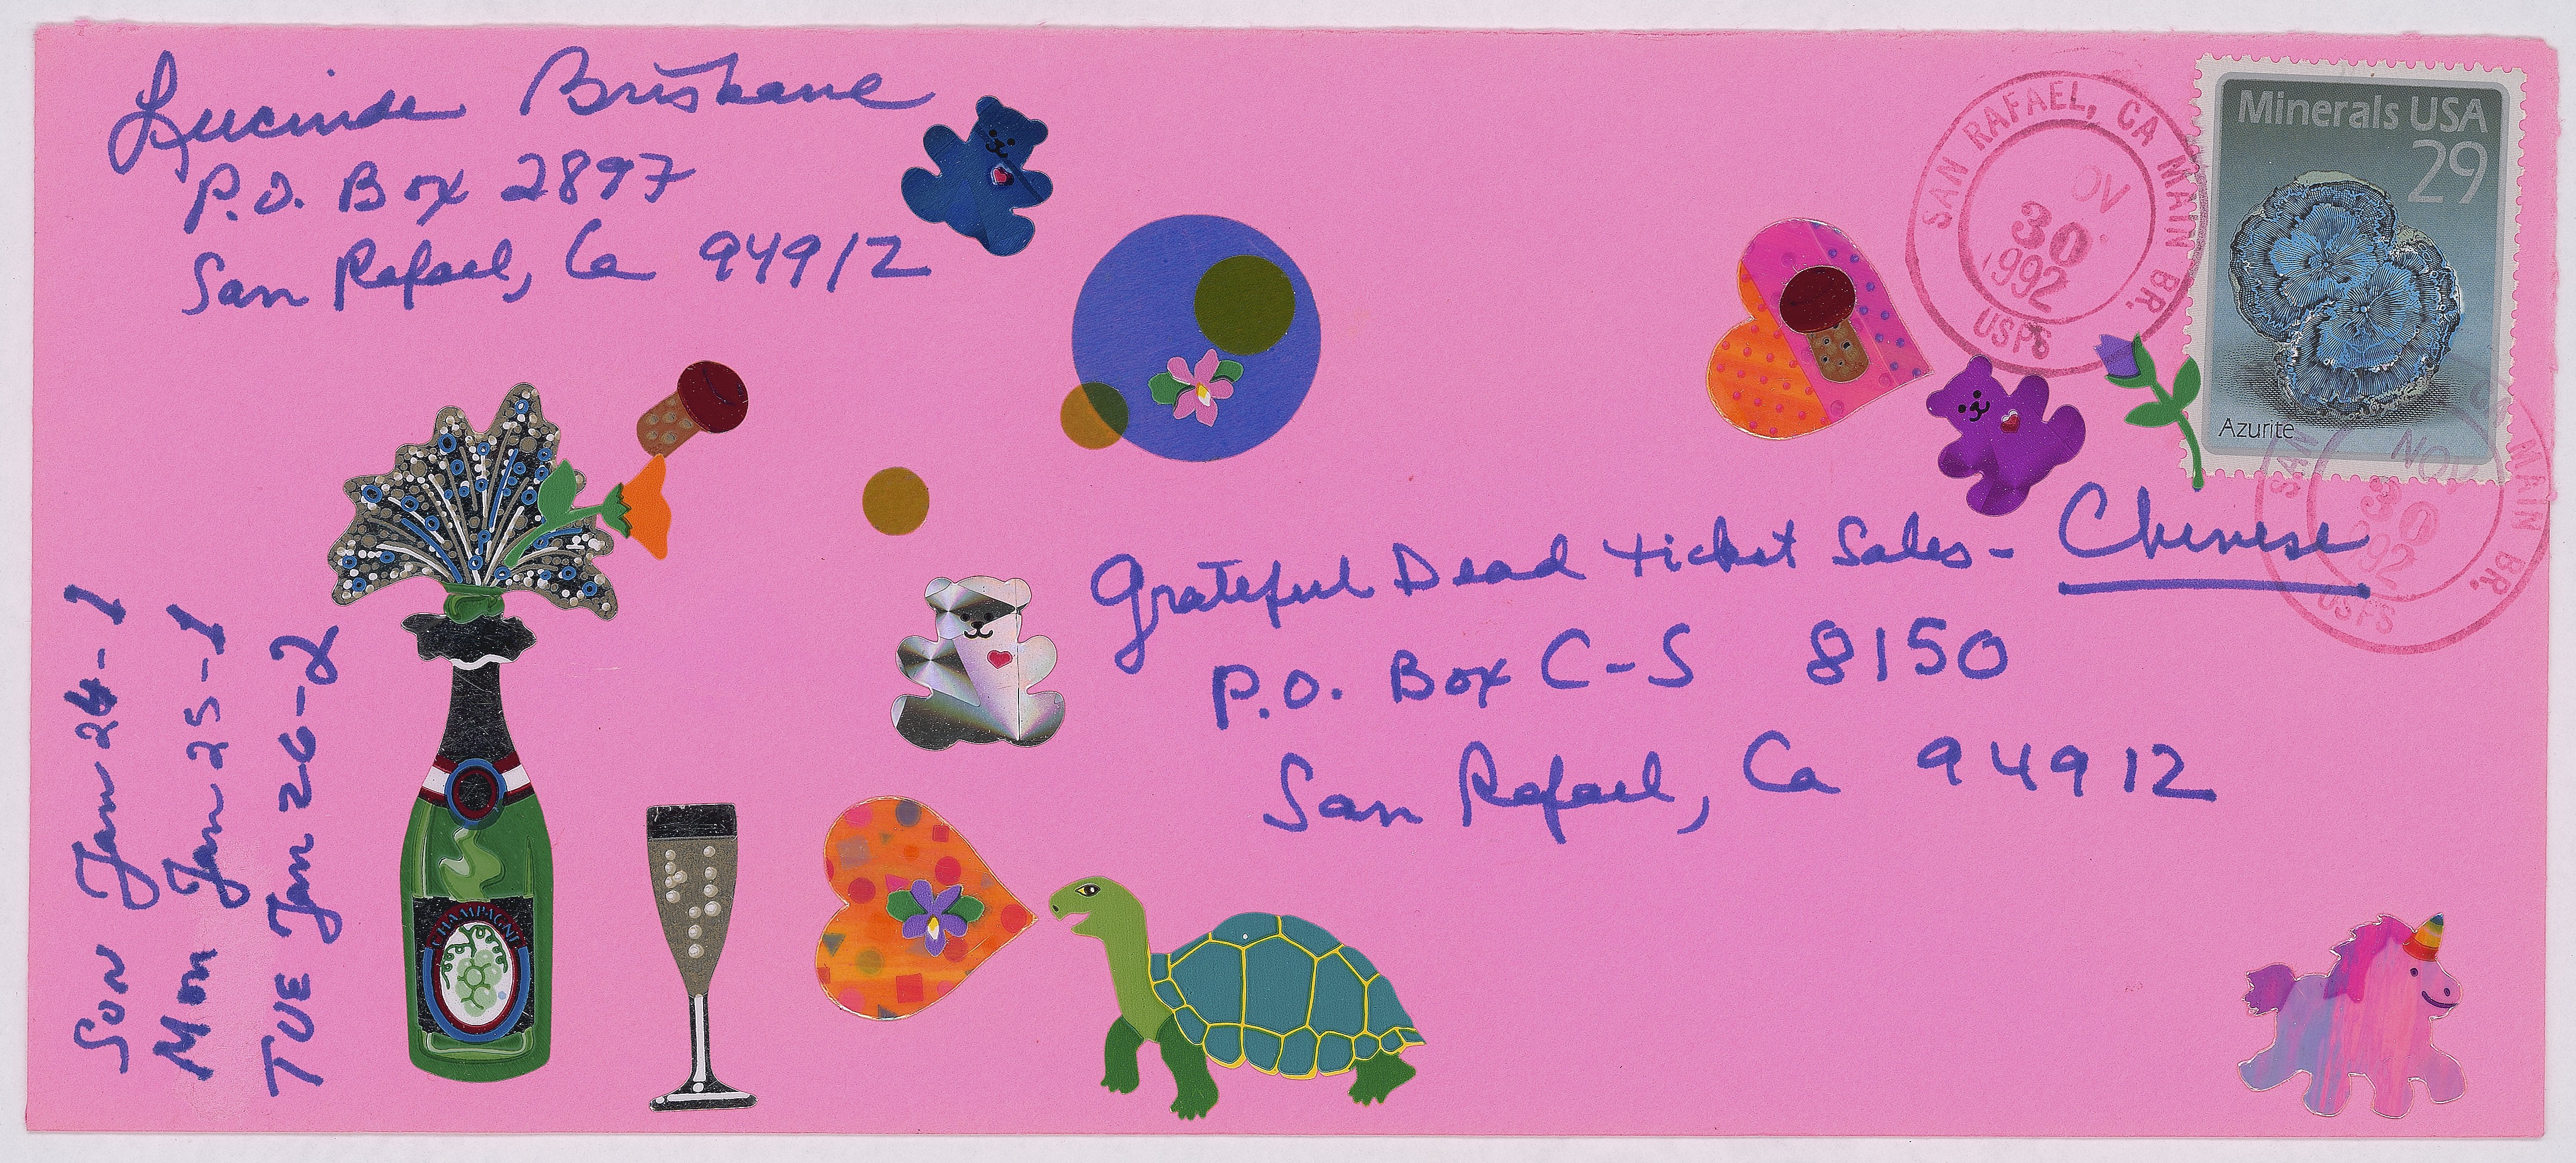 Lucinda Brisbane
P.O. Box 2897
San Rafael, Ca 94912
SAN RAFAEL, CA MAIN BR.
30
1992
USPS
Minerals USA
29
Azurite
Grateful Dead ticket Sales - Chinese
P.O. Box C-S 8150
San Rafael, Ca 94912
SAN MAIN BR.
NOV
30
92
USPS
SUN Jan 24-1
Mon Jan 25-1
TUE Jan 26-2
CHAMPAGNE